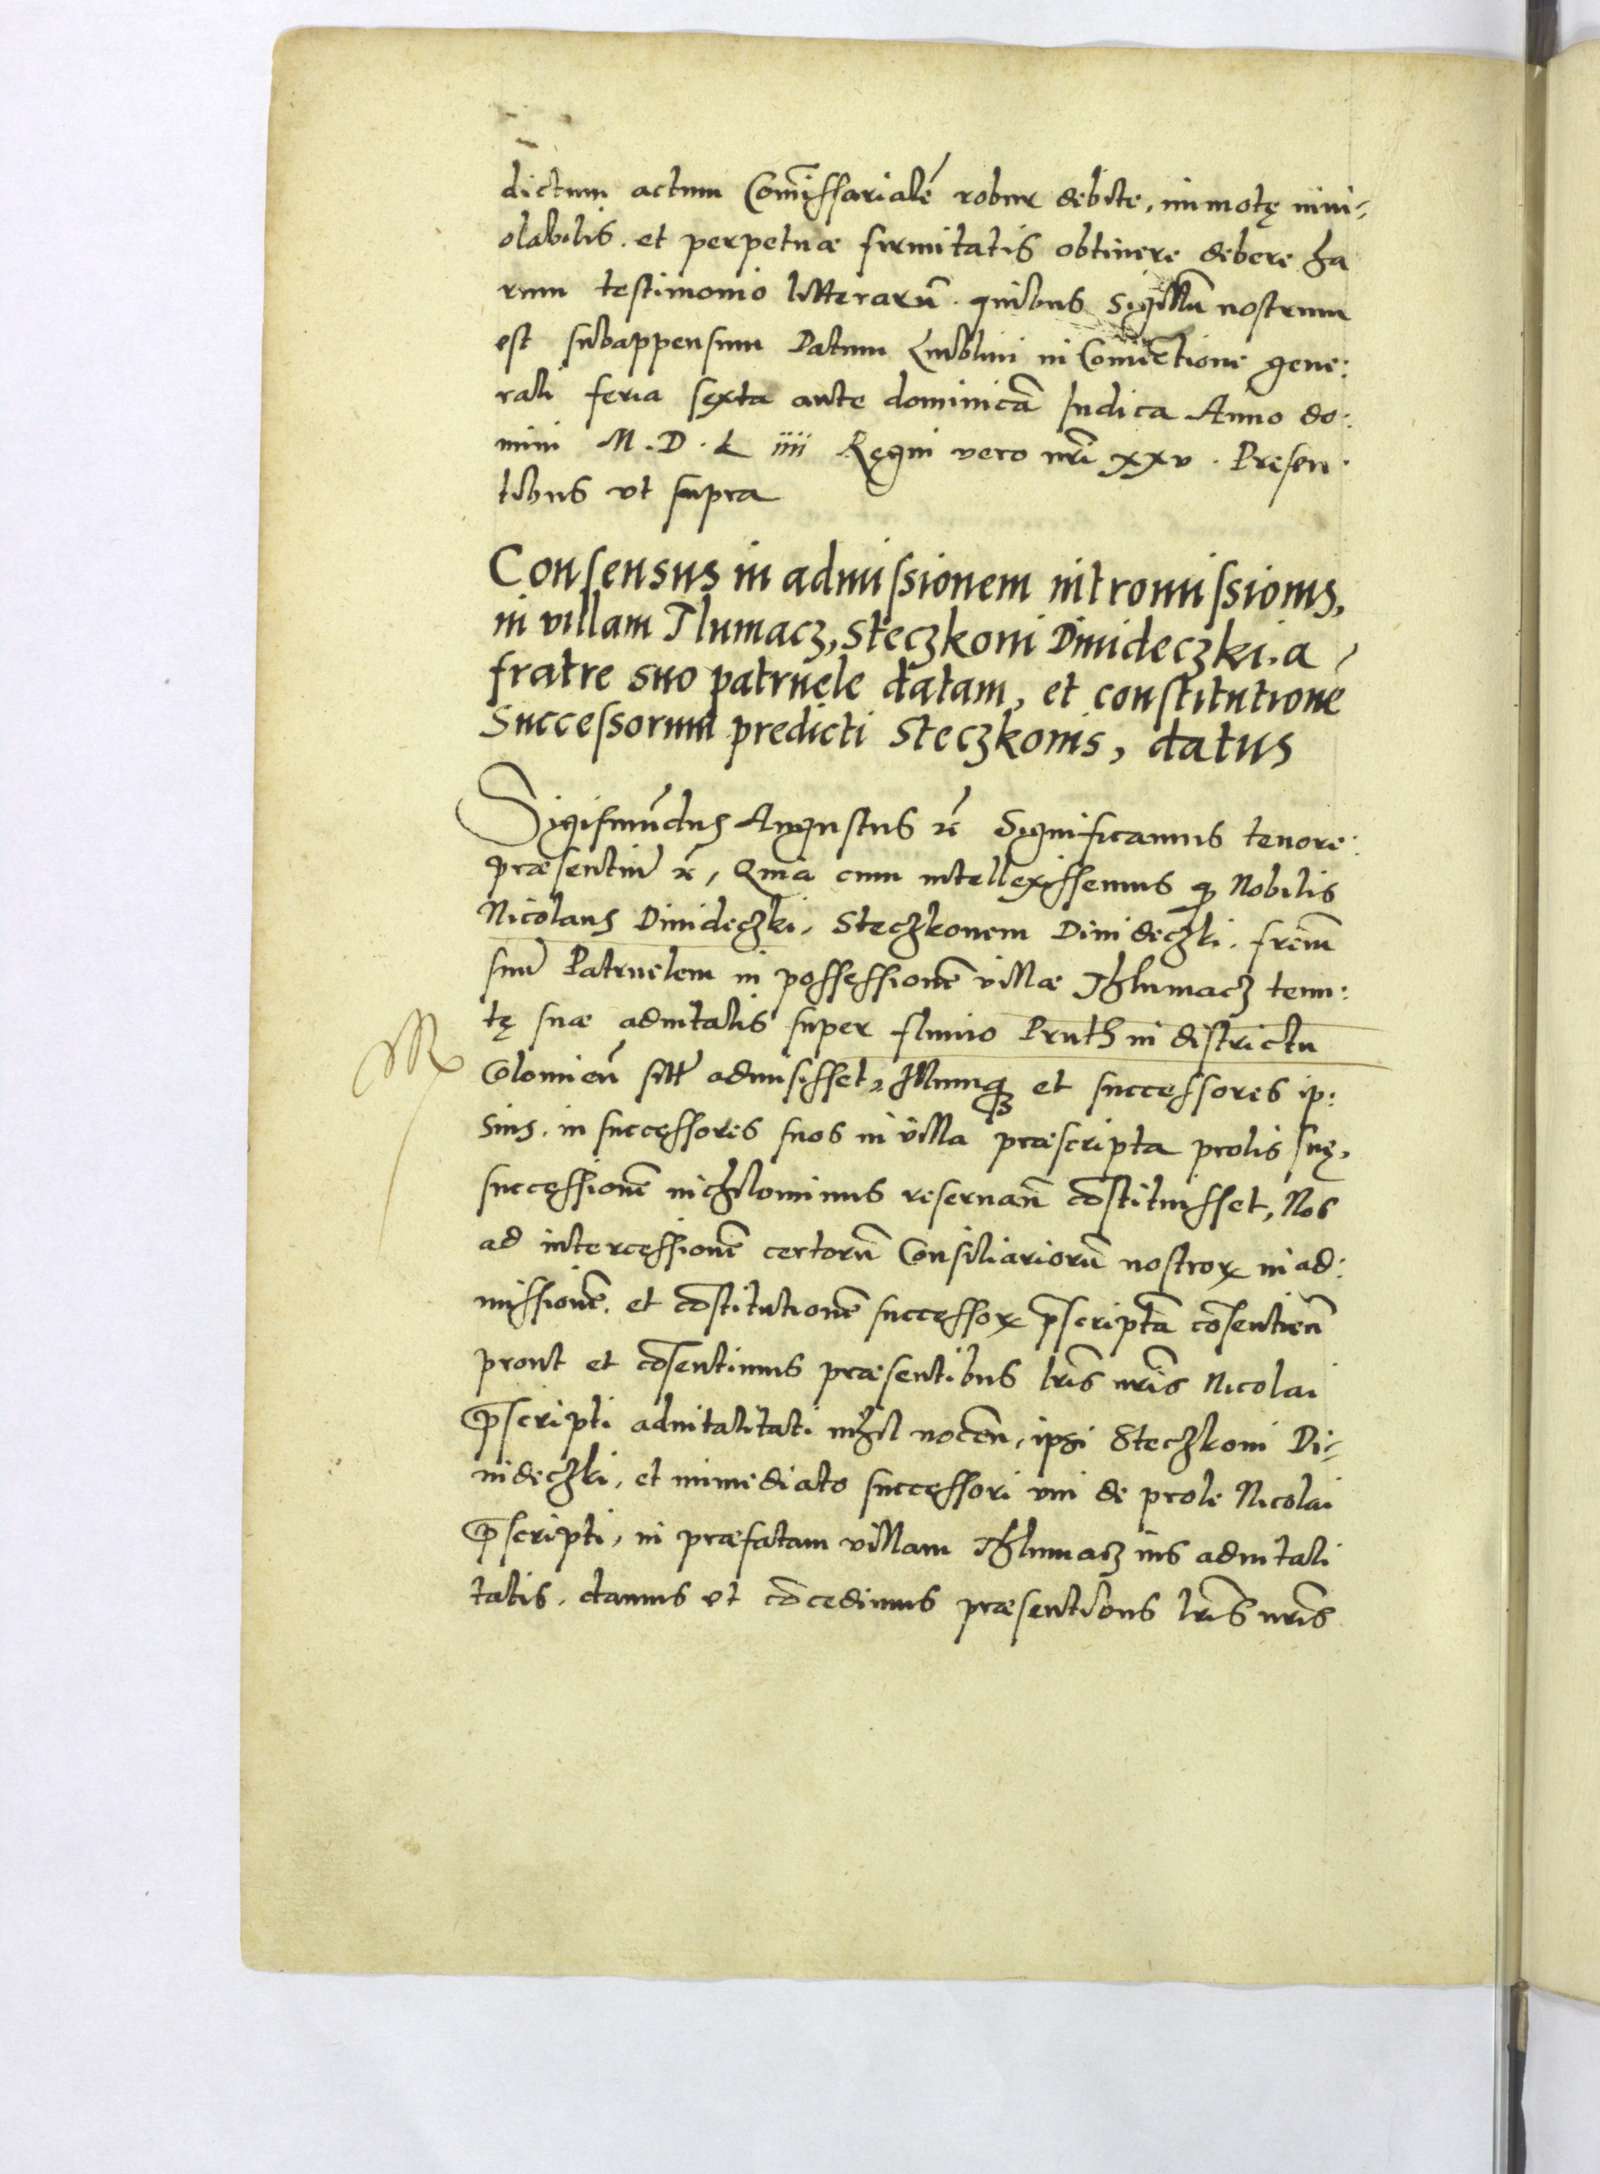 dictum actum Com̄issarialē robur debite, immotę inui-
olabilis. et perpetuæ firmitatis obtinere debere ha
rum testimonio litterarū. quibus Sigillū nostrum
est subappensum Datum Lublini in Conuētione gene:
rali feria sexta ante dominicā Iudica Anno do:
mini M.D.L iiii Regni vero nr̄i xxv. Presen.
tibus vt supra
Consensus in admissionem intromissionis,
in villam Tlumacz, Steczkoni Dinideczki. a
fratre suo patruele datam, et constitutionē
Successorum predicti Steczkonis, datus
Sigismūdus Augustus rc̄ Significamus tenore:
præsentiū rc̄, Quia cum intellexissemus qđ Nobilis
Nicolaus Dinideczki, Steczkonem Dinideczki. frēm
suū Patruelem in possessionē villæ Thlumacz tenu:
tę suæ aduitalis super fluuio Pruth in districtu
Colomieñ sitł admisisset, Illumqꝫ et successores ip:
sius. in successores suos in villa præscripta prolis suę,
successionē nichilominus reseruañ cōstituisset, Nos
ad intercessionē certorū Consiliariorū nostroꝝ in ad:
missionē. et cōstitutionē successoꝝ p̄scriptā cōsentieñ
prout et cōsentimus præsentibus lr̄is nr̄is Nicolai
p̄scripti aduitalitati nihil noceñ, ipsi Steczkoni Di-
nideczki, et immediato successori vni de prole Nicolai
p̄scripti, in præfatam villam Thlumacz ius aduitali
tatis. damus et cōcedimus præsentibus lr̄is nr̄is